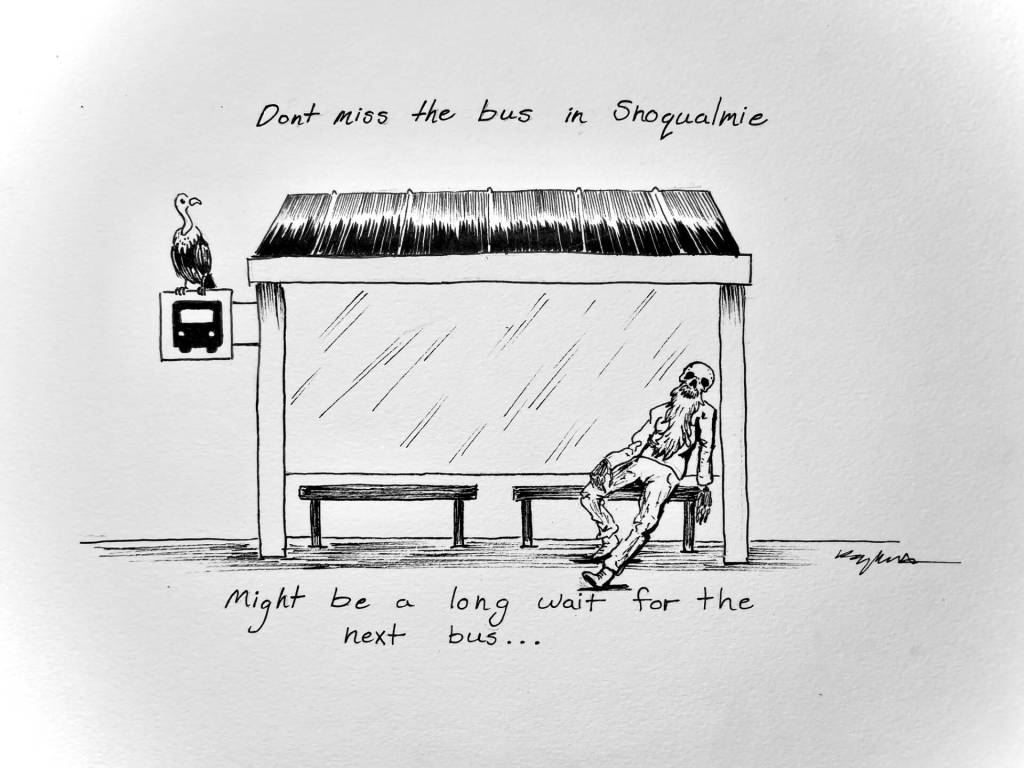 Dont miss the bus in Snoqualmie
Might be a long wait for the
next bus...